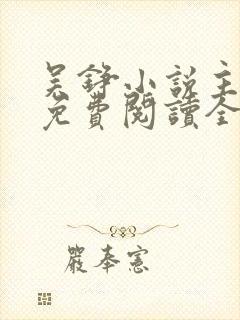 吴錚小说主
免費閱讀全
嚴奉憲